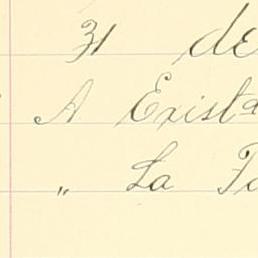 31 de
A Exista
" La